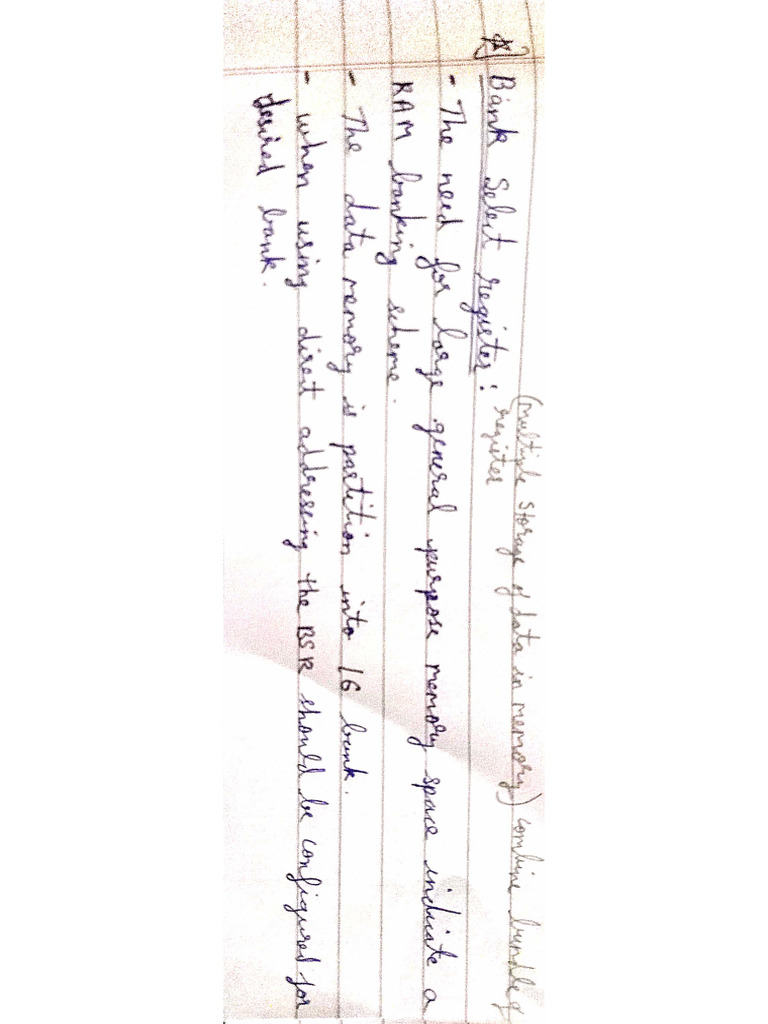 ☆] Bank Select register: (multiple storage of data in memory) combine bundle of
register
- The need for large general purpose memory space indicate a
RAM banking scheme.
- The data memory is partition into 16 bank.
- when using direct addressing the BSR should be configured for
desired bank.